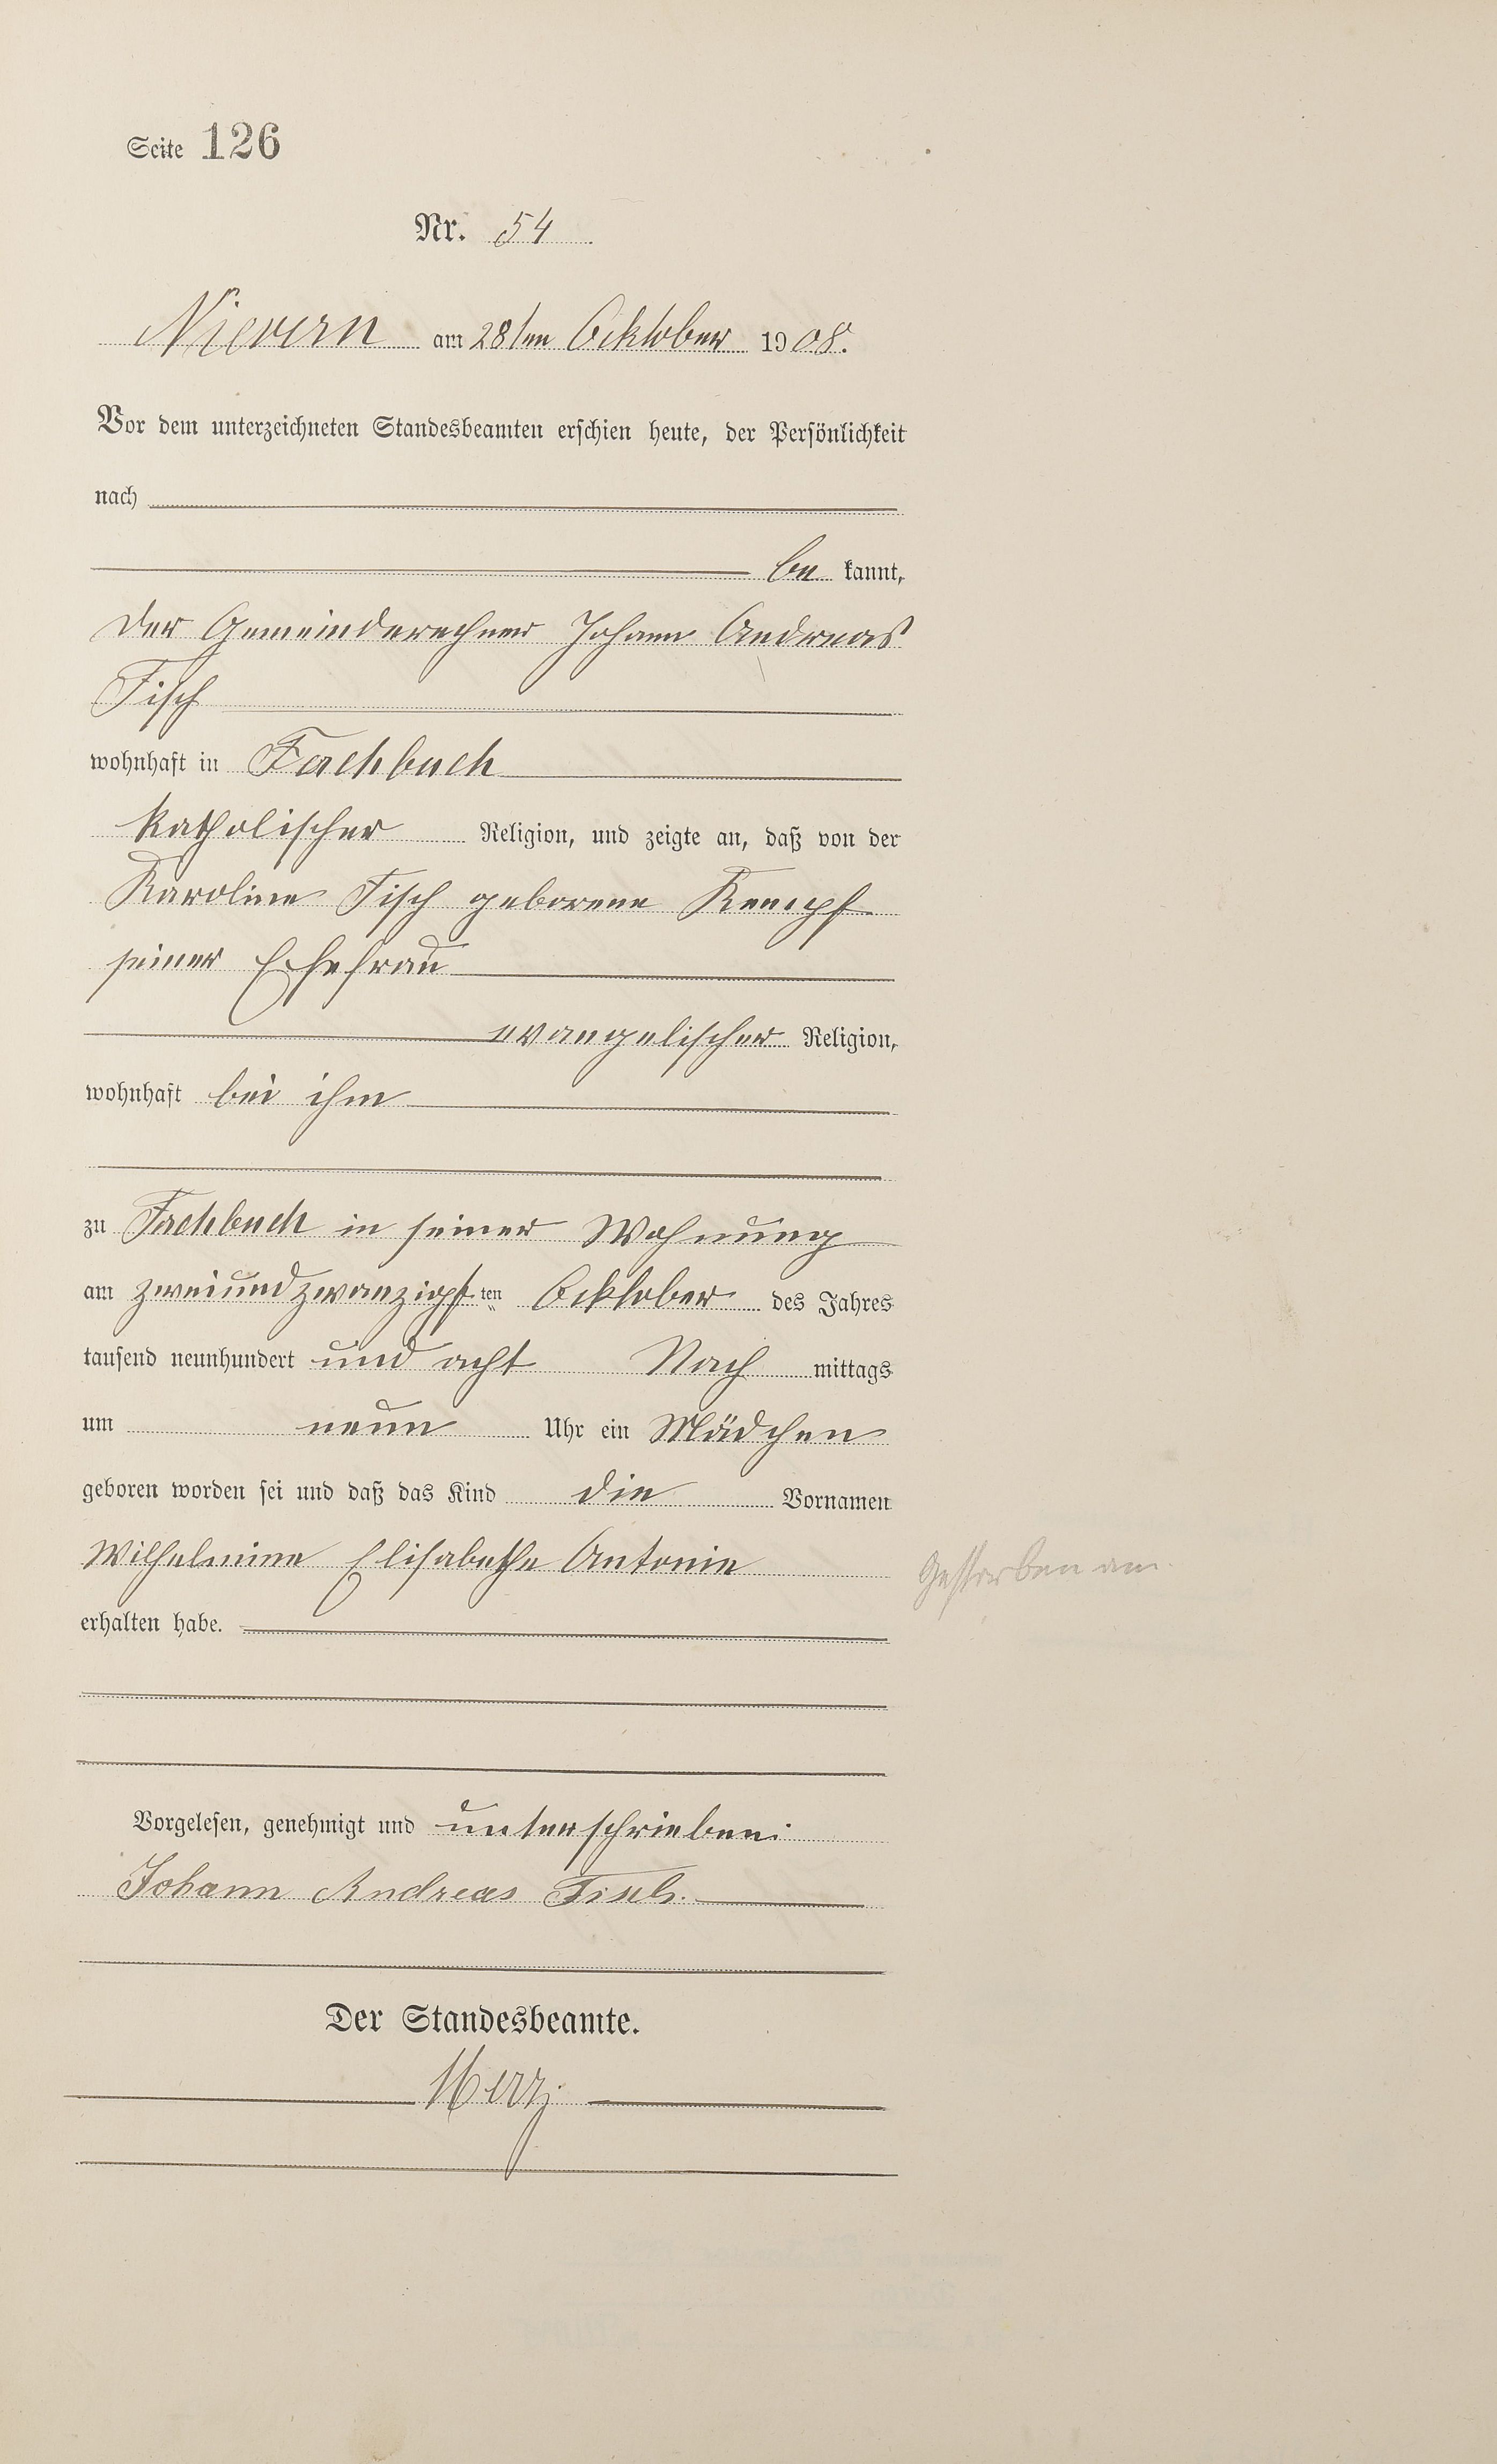 Seite 126
Nr. 54
Nievern am 28ten Ocktober 1908.
Vor dem unterzeichneten Standesbeamten erschien heute, der Persönlichkeit
nach
be kannt,
der Gemeinderechner Johann Andreas
Fisch
wohnhaft in Fachbach
katholischer Religion, und zeigte an, daß von der
Karoline Fisch geborene Kempf
seiner Ehefrau
evangelischer Religion,
wohnhaft bei ihm
zu Fachbach in seiner Wohnung
am zweiundzwanzigsten Ocktober des Jahres
tausend neunhundert und acht Nach mittags
um neun Uhr ein Mädchen
geboren worden sei und daß das Kind die Vornamen
Wilhelmine Elisabethe Antonie
Gestorben am
erhalten habe.
Vorgelesen, genehmigt und unterschrieben:
Johann Andreas Fisch.
Der Standesbeamte.
Merz